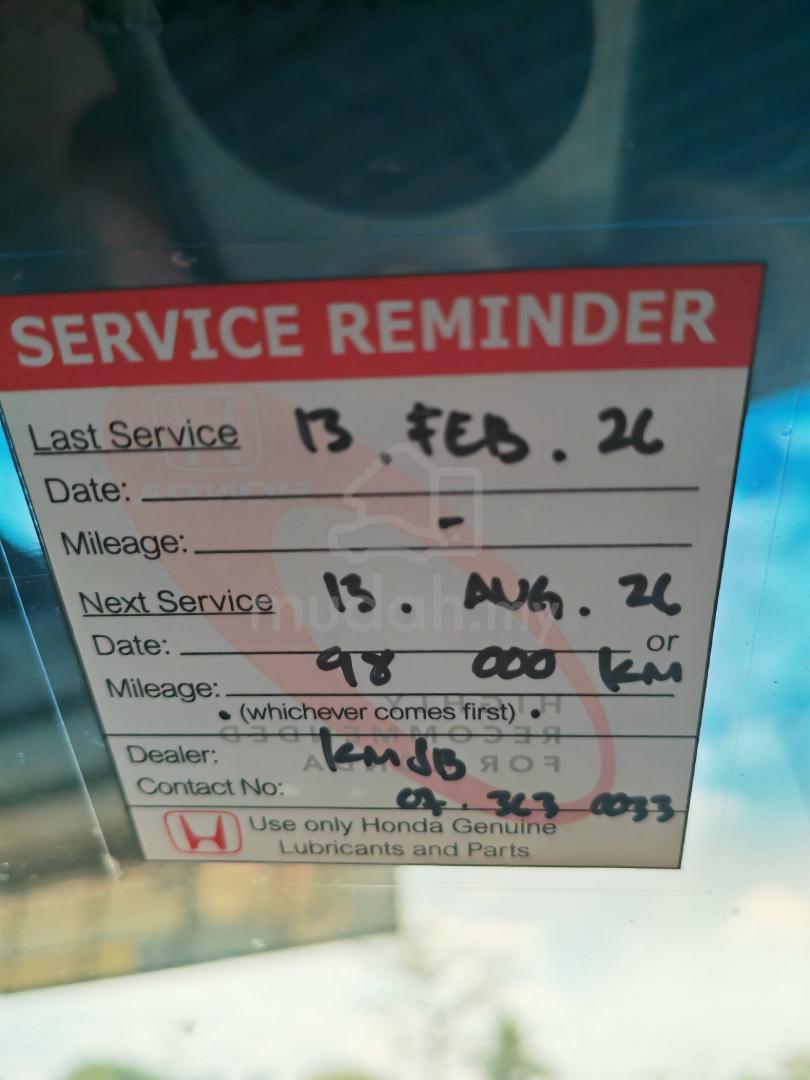 SERVICE REMINDER
Last Service 13 . FEB . 26
Date:
Mileage: -
Next Service 13 . AUG . 26
Date: or
Mileage: 98 000 KM
• (whichever comes first) •
Dealer: KMSB
Contact No: 07 . 363 0033
Use only Honda Genuine
Lubricants and Parts
mudah.my
HONDA
HIGHLY
RECOMMENDED
FOR HONDA